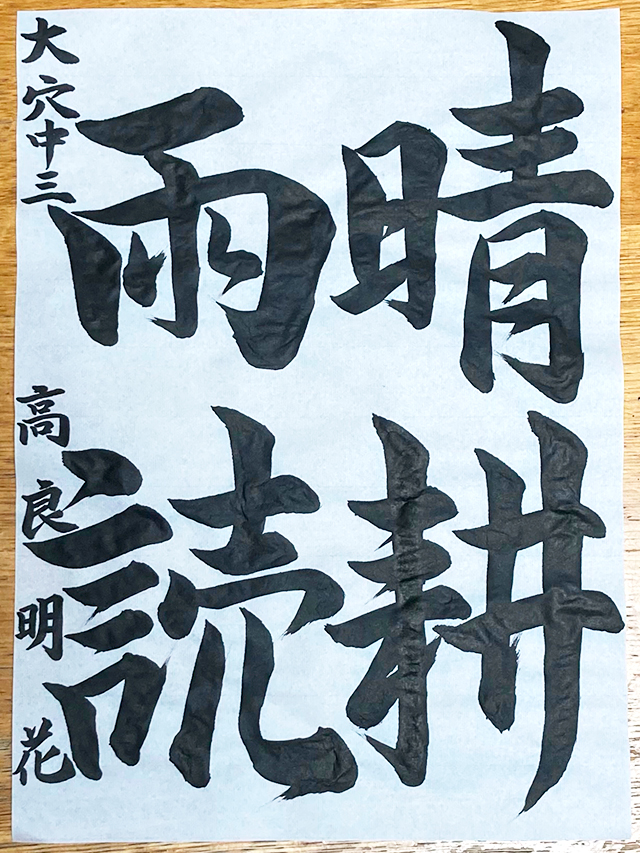 晴耕
雨読
大穴中三 高良明花